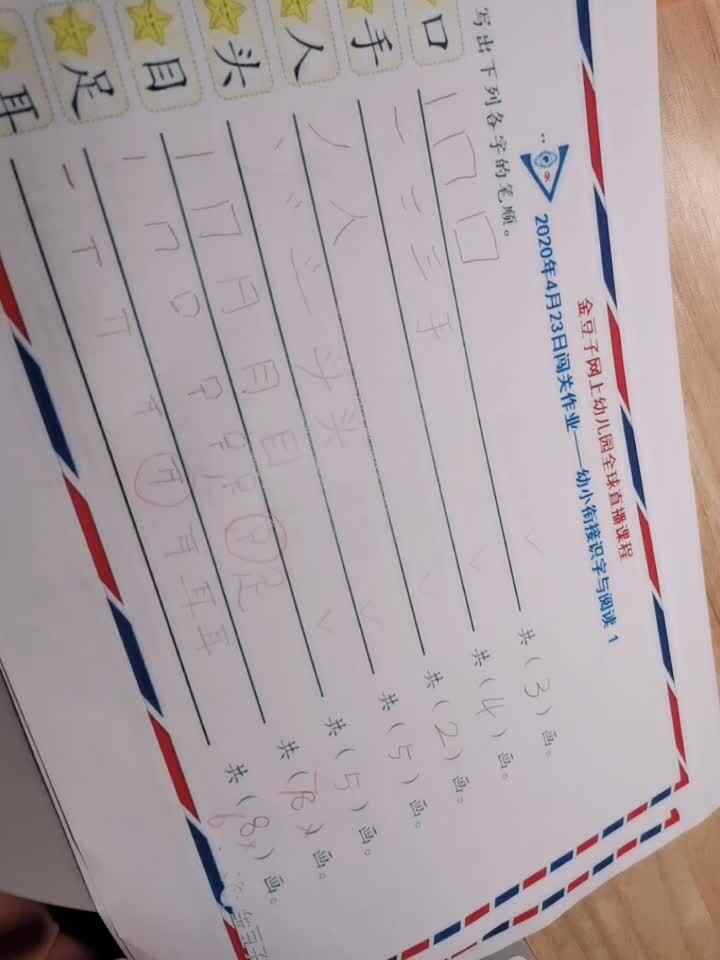 金豆子网上幼儿园全球直播课程
2020年4月23日闯关作业——幼小衔接识字与阅读 1
写出下列各字的笔顺。
口 丨 冂 口 共(3)画。
手 一 二 三 手 共(4)画。
人 丿 人 共(2)画。
头 共(5)画。
目 丨 冂 月 目 共(5)画。
足 共(78×)画。
耳 共(8×)画。
6
金豆子